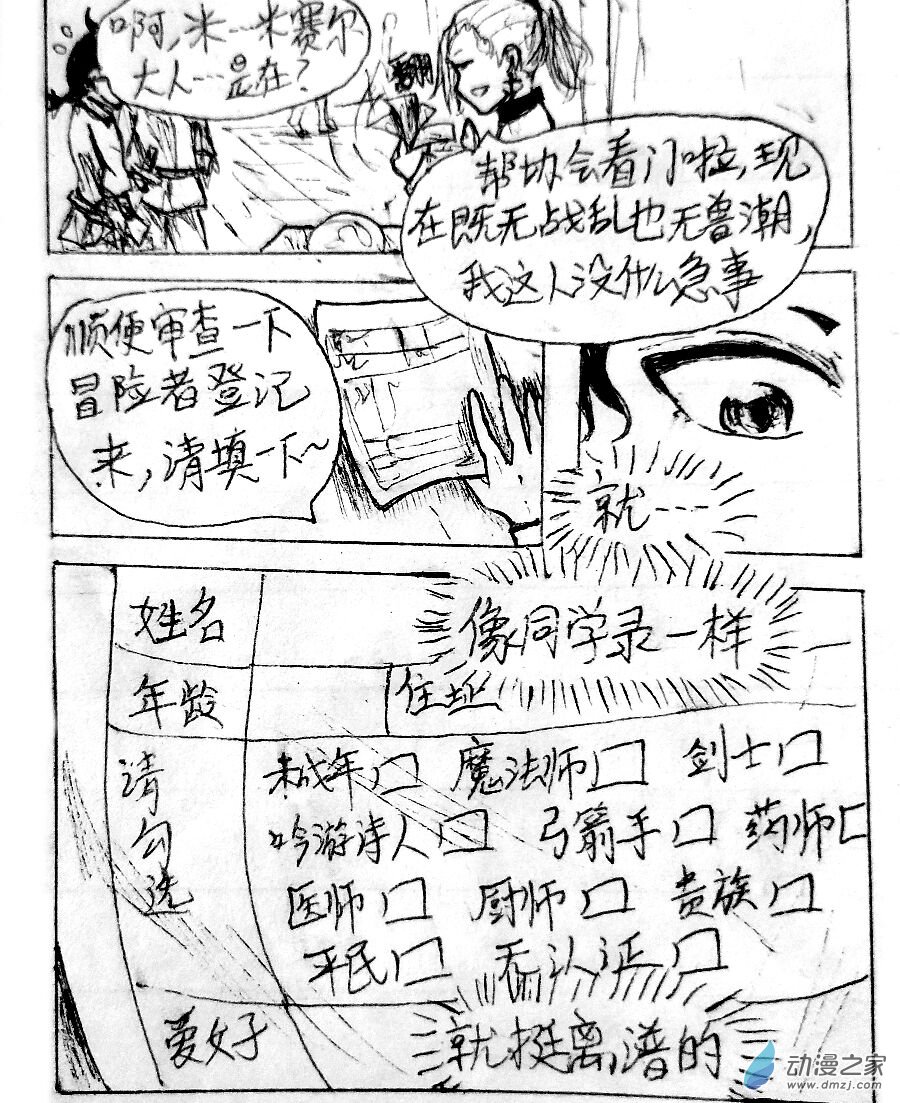 啊,米…米赛尔
大人…是在?
翻
帮协会看门啦,现
在既无战乱也无兽潮,
我这人没什么急事
顺便审查一下
冒险者登记
来,请填一下~
就……
像同学录一样
姓名
年龄 住址
请勾选
未成年口 魔法师口 剑士口
吟游诗人口 弓箭手口 药师口
医师口 厨师口 贵族口
平民口
爱好
就挺离谱的
动漫之家
www.dmzj.com